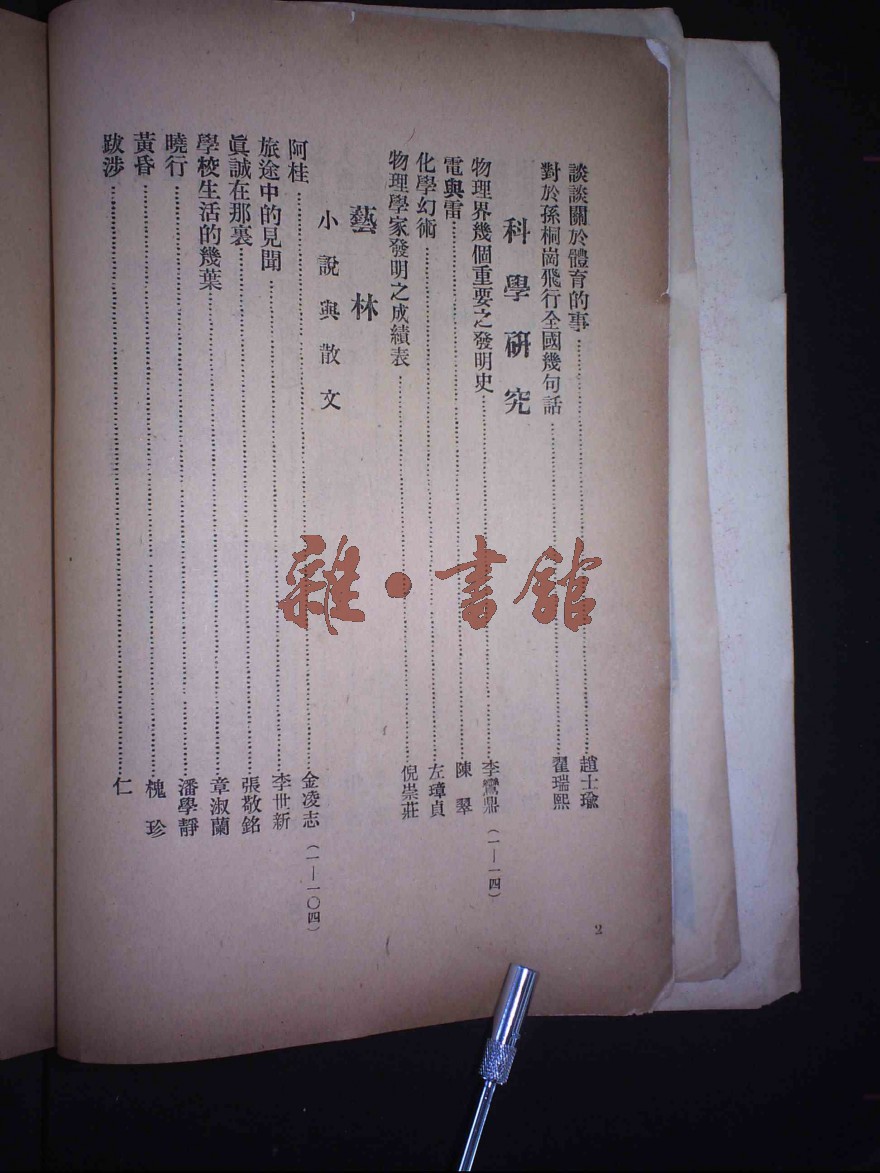 談談關於體育的事……趙士瑜
對於孫桐崗飛行全國幾句話……翟瑞熙
科學研究
物理界幾個重要之發明史……李鸞鼎（一—一四）
電與雷……陳翠
化學幻術……左璋貞
物理學家發明之成績表……倪崇莊
藝林
小說與散文
阿桂……金凌志（一—一〇四）
旅途中的見聞……李世新
眞誠在那裏……張敬銘
學校生活的幾葉……章淑蘭
曉行……潘學靜
黃昏……槐珍
跋涉……仁
2
雜·書館